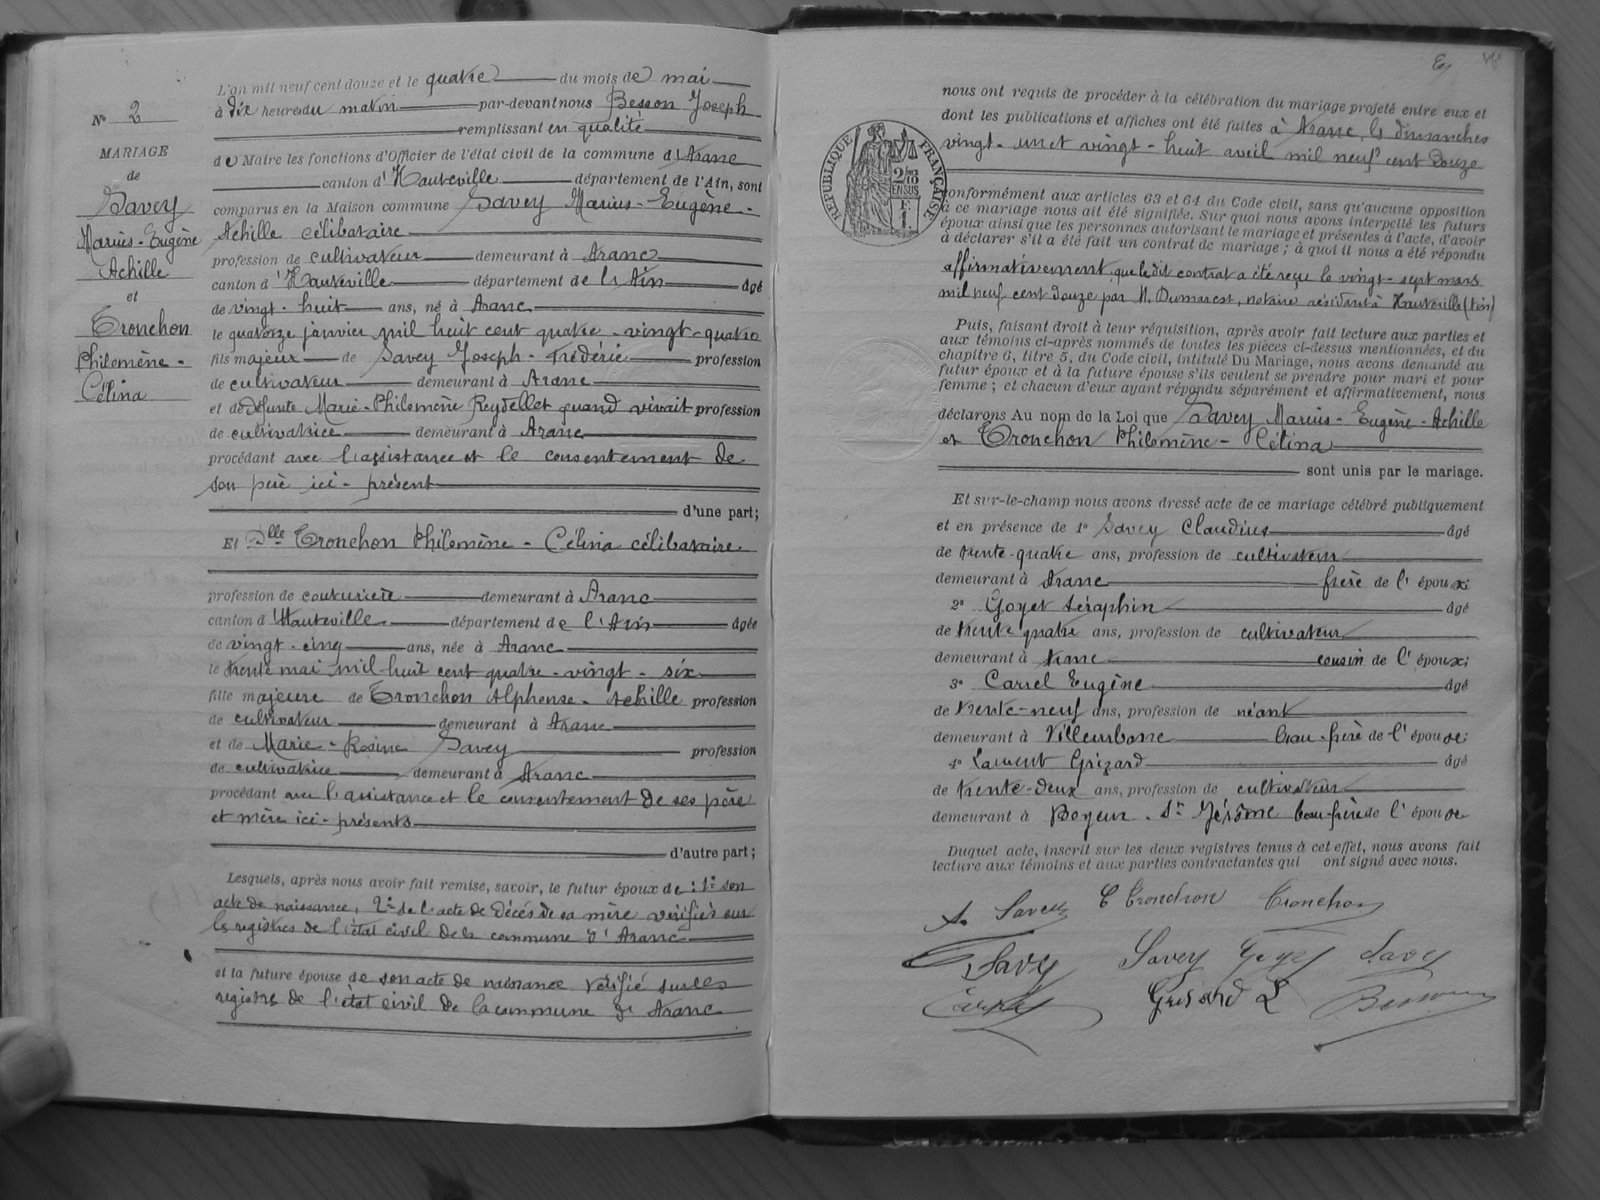 N° 2
MARIAGE
de
Savey
Marius-Eugène
Achille
et
Tronchon
Philomène-
Célina
L'an mil neuf cent douze et le quatre du mois de mai
à dix heures du matin par-devant nous Besson Joseph
remplissant en qualité
de Maire les fonctions d'Officier de l'état civil de la commune d'Aranc
canton d'Hauteville département de l'Ain, sont
comparus en la Maison commune Savey Marius-Eugène-
Achille célibataire
profession de cultivateur demeurant à Aranc
canton d'Hauteville département de l'Ain âgé
de vingt-huit ans, né à Aranc
le quatorze janvier mil huit cent quatre-vingt-quatre
fils majeur de Savey Joseph-Frédéric profession
de cultivateur demeurant à Aranc
et de défunte Marie-Philomène Reydellet quand vivait profession
de cultivatrice demeurant à Aranc
procédant avec l'assistance et le consentement de
son père ici-présent
d'une part;
Et Dlle Tronchon Philomène-Célina célibataire
profession de couturière demeurant à Aranc
canton d'Hauteville département de l'Ain âgée
de vingt-cinq ans, née à Aranc
le trente mai mil huit cent quatre-vingt-six
fille majeure de Tronchon Alphonse-Achille profession
de cultivateur demeurant à Aranc
et de Marie-Rosine Savey profession
de cultivatrice demeurant à Aranc
procédant avec l'assistance et le consentement de ses père
et mère ici-présents
d'autre part;
Lesquels, après nous avoir fait remise, savoir, le futur époux de : 1° son
acte de naissance, 2° de l'acte de décès de sa mère vérifiés sur
les registres de l'état civil de la commune d'Aranc
et la future épouse de son acte de naissance vérifié sur les
registres de l'état civil de la commune de Aranc
nous ont requis de procéder à la célébration du mariage projeté entre eux et
dont les publications et affiches ont été faites à Aranc, les dimanches
vingt-un et vingt-huit avril mil neuf cent douze
RÉPUBLIQUE FRANÇAISE
conformément aux articles 63 et 64 du Code civil, sans qu'aucune opposition
à ce mariage nous ait été signifiée. Sur quoi nous avons interpellé les futurs
époux ainsi que les personnes autorisant le mariage et présentes à l'acte, d'avoir
à déclarer s'il a été fait un contrat de mariage ; à quoi il nous a été répondu
affirmativement, que ledit contrat a été reçu le vingt-sept mars
mil neuf cent douze par M. Dumarest, notaire résidant à Hauteville (Ain)
Puis, faisant droit à leur réquisition, après avoir fait lecture aux parties et
aux témoins ci-après nommés de toutes les pièces ci-dessus mentionnées, et du
chapitre 6, titre 5, du Code civil, intitulé Du Mariage, nous avons demandé au
futur époux et à la future épouse s'ils veulent se prendre pour mari et pour
femme ; et chacun d'eux ayant répondu séparément et affirmativement, nous
déclarons Au nom de la Loi que Savey Marius-Eugène-Achille
et Tronchon Philomène-Célina
sont unis par le mariage.
Et sur-le-champ nous avons dressé acte de ce mariage célébré publiquement
et en présence de 1° Savey Claudius âgé
de trente-quatre ans, profession de cultivateur
demeurant à Aranc frère de l'époux;
2° Goyet Séraphin âgé
de trente quatre ans, profession de cultivateur
demeurant à Aranc cousin de l'époux;
3° Carrel Eugène âgé
de trente-neuf ans, profession de néant
demeurant à Villeurbanne beau-frère de l'épouse;
4° Laurent Grizard âgé
de trente-deux ans, profession de cultivateur
demeurant à Boyeux-St Jérôme beau-frère de l'épouse
Duquel acte, inscrit sur les deux registres tenus à cet effet, nous avons fait
lecture aux témoins et aux parties contractantes qui ont signé avec nous.
A. Savey C Tronchon Tronchon
Savey Savey Goyet Savey
Carrel Grisard L Besson